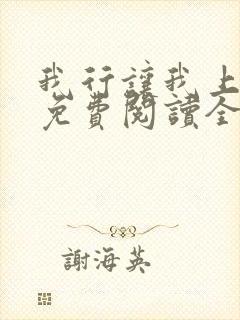 我行讓我上
免費閱讀全
謝海英